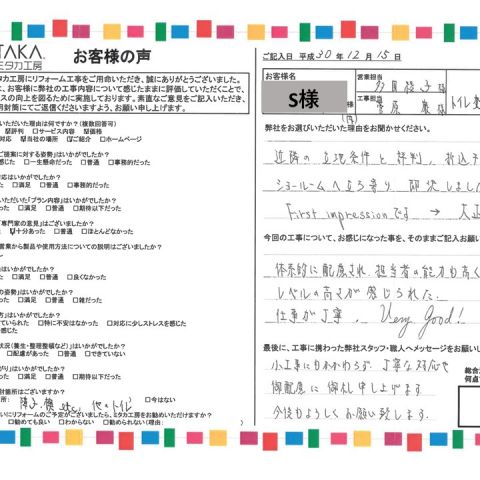 TAKA
ミタカ工房
お客様の声
タカ工房にリフォーム工事をご用命いただき、誠にありがとうございました。
は、お客様に弊社の工事内容について感じたままに評価していただくことで、
ビスの向上を図るために実施しております。率直なご意見をご記入いただき、
封筒にてご返信くださいますよう、お願い申し上げます。
いただいた理由は何ですか?(複数回答可)
評判 □サービス内容 価格
対応 当社の場所 ご紹介 □ホームページ
ご提案に対する姿勢」はいかがでしたか?
感じた □一生懸命だった □普通 □事務的だった
対応はいかがでしたか?
った □満足 □普通 □事務的だった
いただいた「プラン内容」はいかがでしたか?
った □満足 □普通 □期待以下だった
「専門家の意見」はございましたか?
た 十分あった □普通 □ほとんどなかった
営業から製品や使用方法についての説明はございましたか?
はいかがでしたか?
った □満足 □普通 □良くなかった
の姿勢」はいかがでしたか?
った □満足 □普通 □雑だった
方」はいかがでしたか?
ていられた □特に不安はなかった □対応に少しストレスを感じた
状況(養生・整理整頓など)」はいかがでしたか?
□配慮があった □普通 □できていない
がり」はいかがでしたか?
った □満足 □普通 □期待以下だった
箇所はございますか?
所: 障子、襖 etc, 他のトイレ ) □今はない
いにリフォームのご予定がございましたら、ミタカ工房をお勧めいただけますか?
□勧めても良い □わからない □勧められない(理由: )
ご記入日 平成 30 年 12 月 15 日
お客様名
S様
営業担当
様
工事担当
菅原 様
トイレ
弊社をお選びいただいた理由をお聞かせください。
近隣の立地条件と評判、折込チ
ショールームへ立ち寄り 即決しまし
First impressionです →
今回の工事について、お感じになった事を、そのままご記入お願い
体系的に配慮され 担当者の能力も高く
レベルの高さが感じられた.
仕事が丁寧. Very Good!
最後に、工事に携わった弊社スタッフ・職人へメッセージをお願いし
小工事にもかかわらず 丁寧な対応や
御配慮に 御礼 申し上げます
今後もよろしくお願い致します.
総合
何点